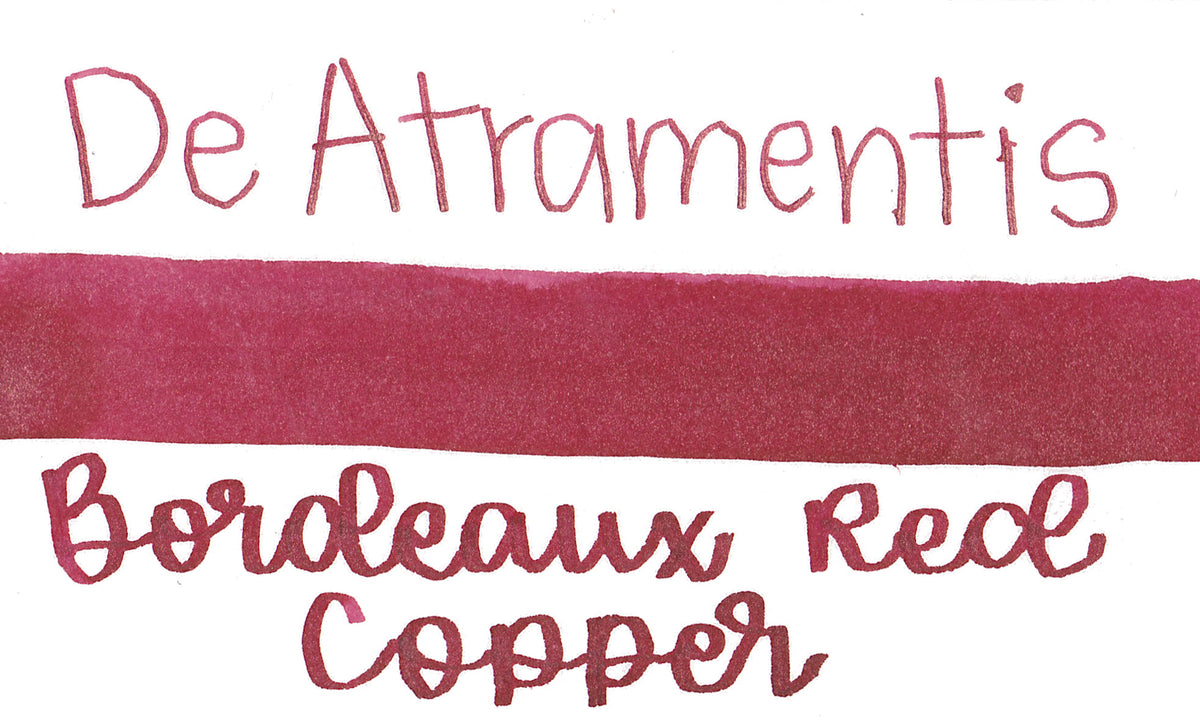 De Atramentis
Bordeaux Red
Copper